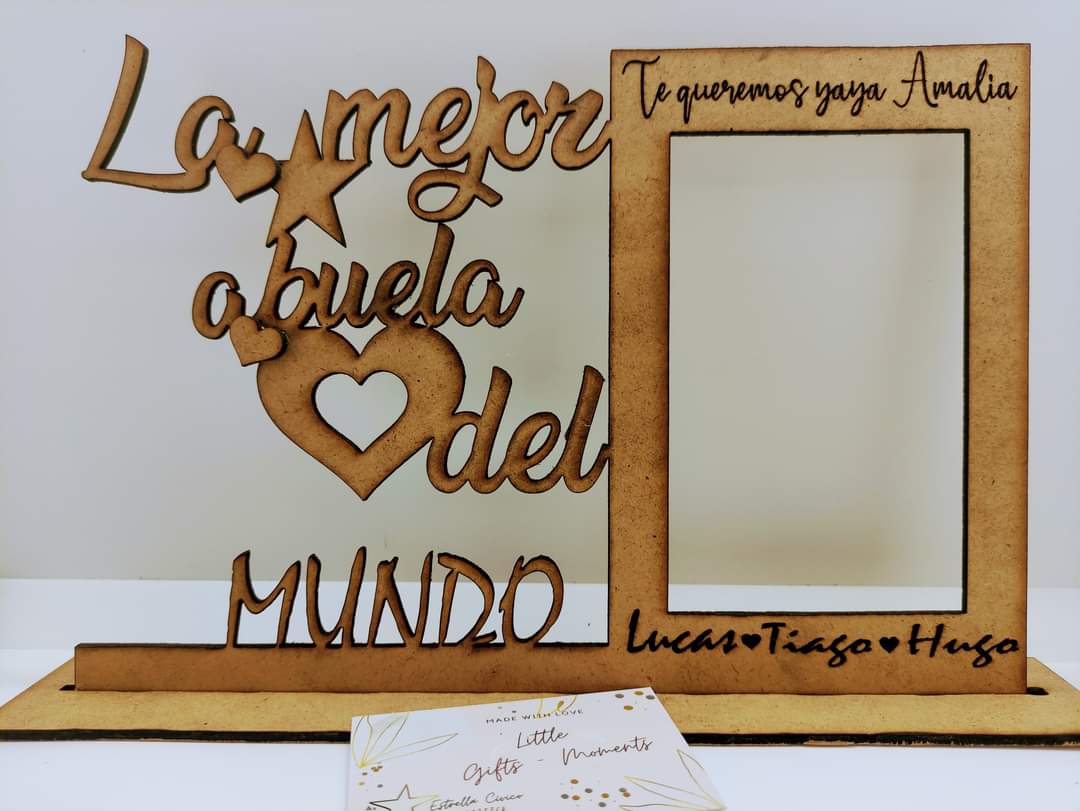 La mejor
abuela
del
MUNDO
Te queremos yaya Amalia
Lucas♥Tiago♥Hugo
MADE WITH LOVE
Little
Gifts - Moments
Estrella Civico